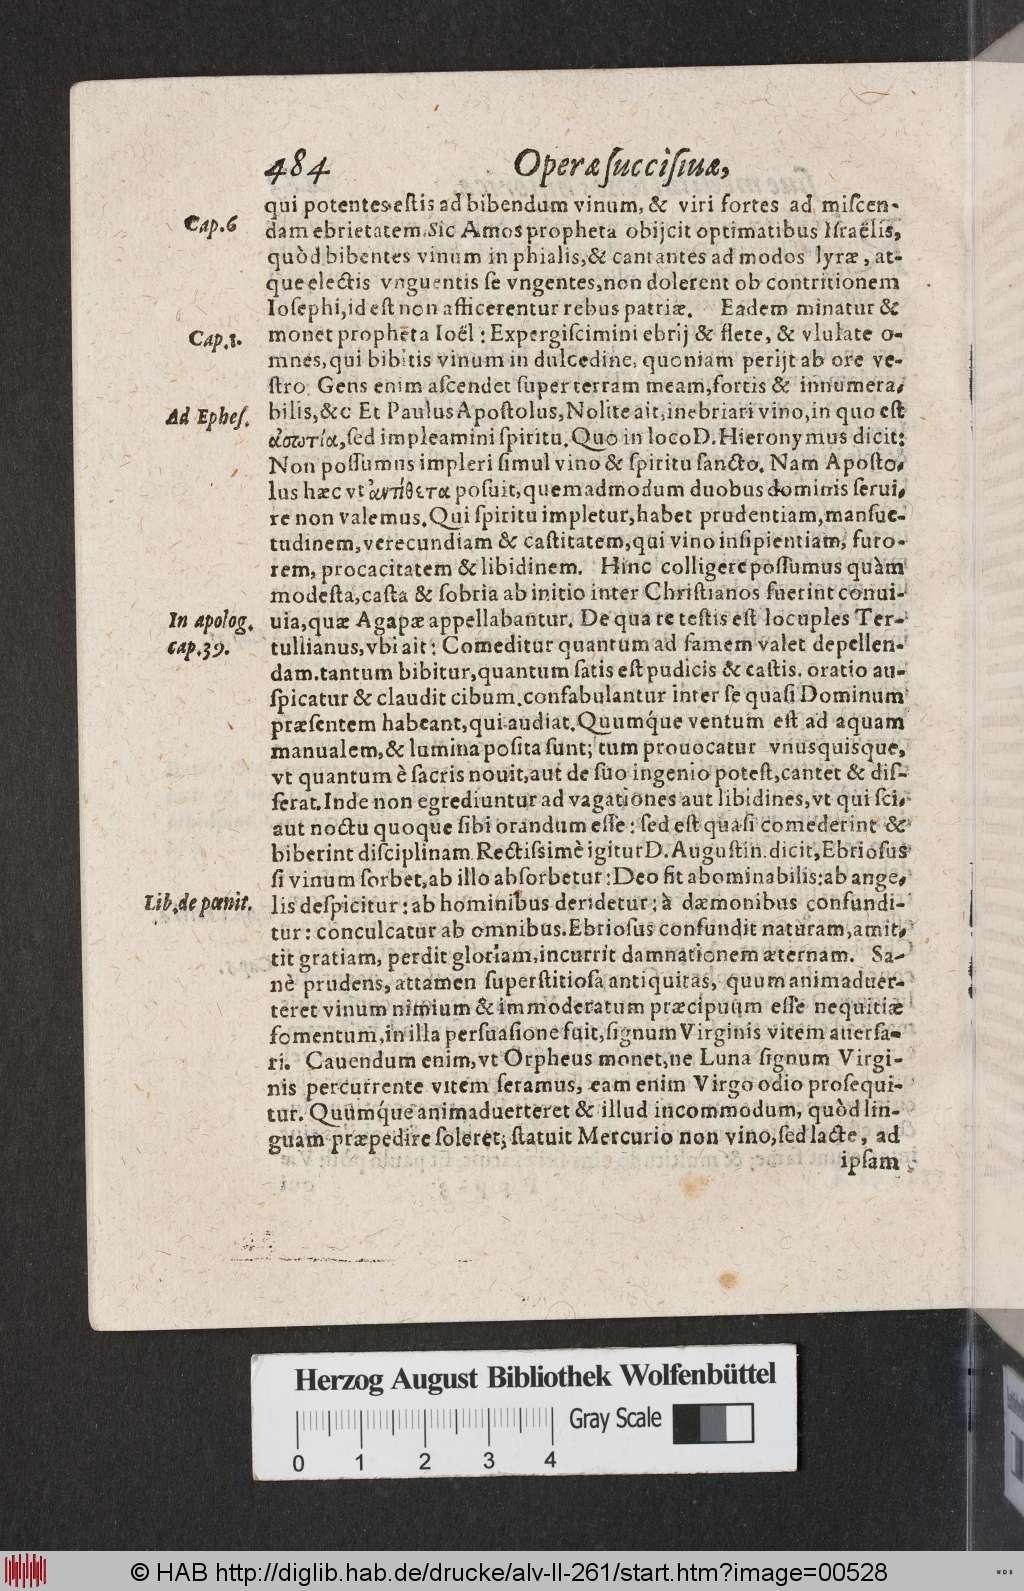 484 Operæ ſucciſiuæ,
qui potentes eſtis ad bibendum vinum, & viri fortes ad miſcen-
Cap. 6
dam ebrietatem. Sic Amos propheta obijcit optimatibus Iſraëlis,
quòd bibentes vinum in phialis, & cantantes ad modos lyræ, at-
que electis vnguentis ſe vngentes, non dolerent ob contritionem
Ioſephi, id eſt non afficerentur rebus patriæ. Eadem minatur &
Cap. 1.
monet propheta Ioël: Expergiſcimini ebrij & flete, & vlulate o-
mnes, qui bibitis vinum in dulcedine, quoniam perijt ab ore ve-
ſtro. Gens enim aſcendet ſuper terram meam, fortis & innumera-
Ad Epheſ.
bilis, &c Et Paulus Apoſtolus, Nolite ait, inebriari vino, in quo eſt
ἀσωτία, ſed impleamini ſpiritu. Quo in loco D. Hieronymus dicit:
Non poſſumus impleri ſimul vino & ſpiritu ſancto. Nam Apoſto-
lus hæc vt ἀντίθετα poſuit, quemadmodum duobus dominis ſerui-
re non valemus. Qui ſpiritu impletur, habet prudentiam, manſue-
tudinem, verecundiam & caſtitatem, qui vino inſipientiam, furo-
rem, procacitatem & libidinem. Hinc colligere poſſumus quàm
modeſta, caſta & ſobria ab initio inter Chriſtianos fuerint conui-
In apolog.
cap. 39.
uia, quæ Agapæ appellabantur. De qua re teſtis eſt locuples Ter-
tullianus, vbi ait: Comeditur quantum ad famem valet depellen-
dam. tantum bibitur, quantum ſatis eſt pudicis & caſtis. oratio au-
ſpicatur & claudit cibum. confabulantur inter ſe quaſi Dominum
præſentem habeant, qui audiat. Quumq́ue ventum eſt ad aquam
manualem, & lumina poſita ſunt; tum prouocatur vnusquisque,
vt quantum è ſacris nouit, aut de ſuo ingenio poteſt, cantet & diſ-
ſerat. Inde non egrediuntur ad vagationes aut libidines, vt qui ſci-
aut noctu quoque ſibi orandum eſſe: ſed eſt quaſi comederint &
biberint diſciplinam. Rectiſsimè igitur D. Auguſtin. dicit, Ebrioſus
ſi vinum ſorbet, ab illo abſorbetur: Deo fit abominabilis: ab ange-
Lib. de pœnit.
lis deſpicitur: ab hominibus deridetur: à dæmonibus confundi-
tur: conculcatur ab omnibus. Ebrioſus confundit naturam, amit-
tit gratiam, perdit gloriam, incurrit damnationem æternam. Sa-
nè prudens, attamen ſuperſtitioſa antiquitas, quum animaduer-
teret vinum nimium & immoderatum præcipuum eſſe nequitiæ
fomentum, in illa perſuaſione fuit, ſignum Virginis vitem auerſa-
ri. Cauendum enim, vt Orpheus monet, ne Luna ſignum Virgi-
nis percurrente vitem ſeramus, eam enim Virgo odio proſequi-
tur. Quumq́ue animaduerteret & illud incommodum, quòd lin-
guam præpedire ſoleret; ſtatuit Mercurio non vino, ſed lacte, ad
ipſam
Herzog August Bibliothek Wolfenbüttel
0 1 2 3 4 Gray Scale
© HAB http://diglib.hab.de/drucke/alv-ll-261/start.htm?image=00528